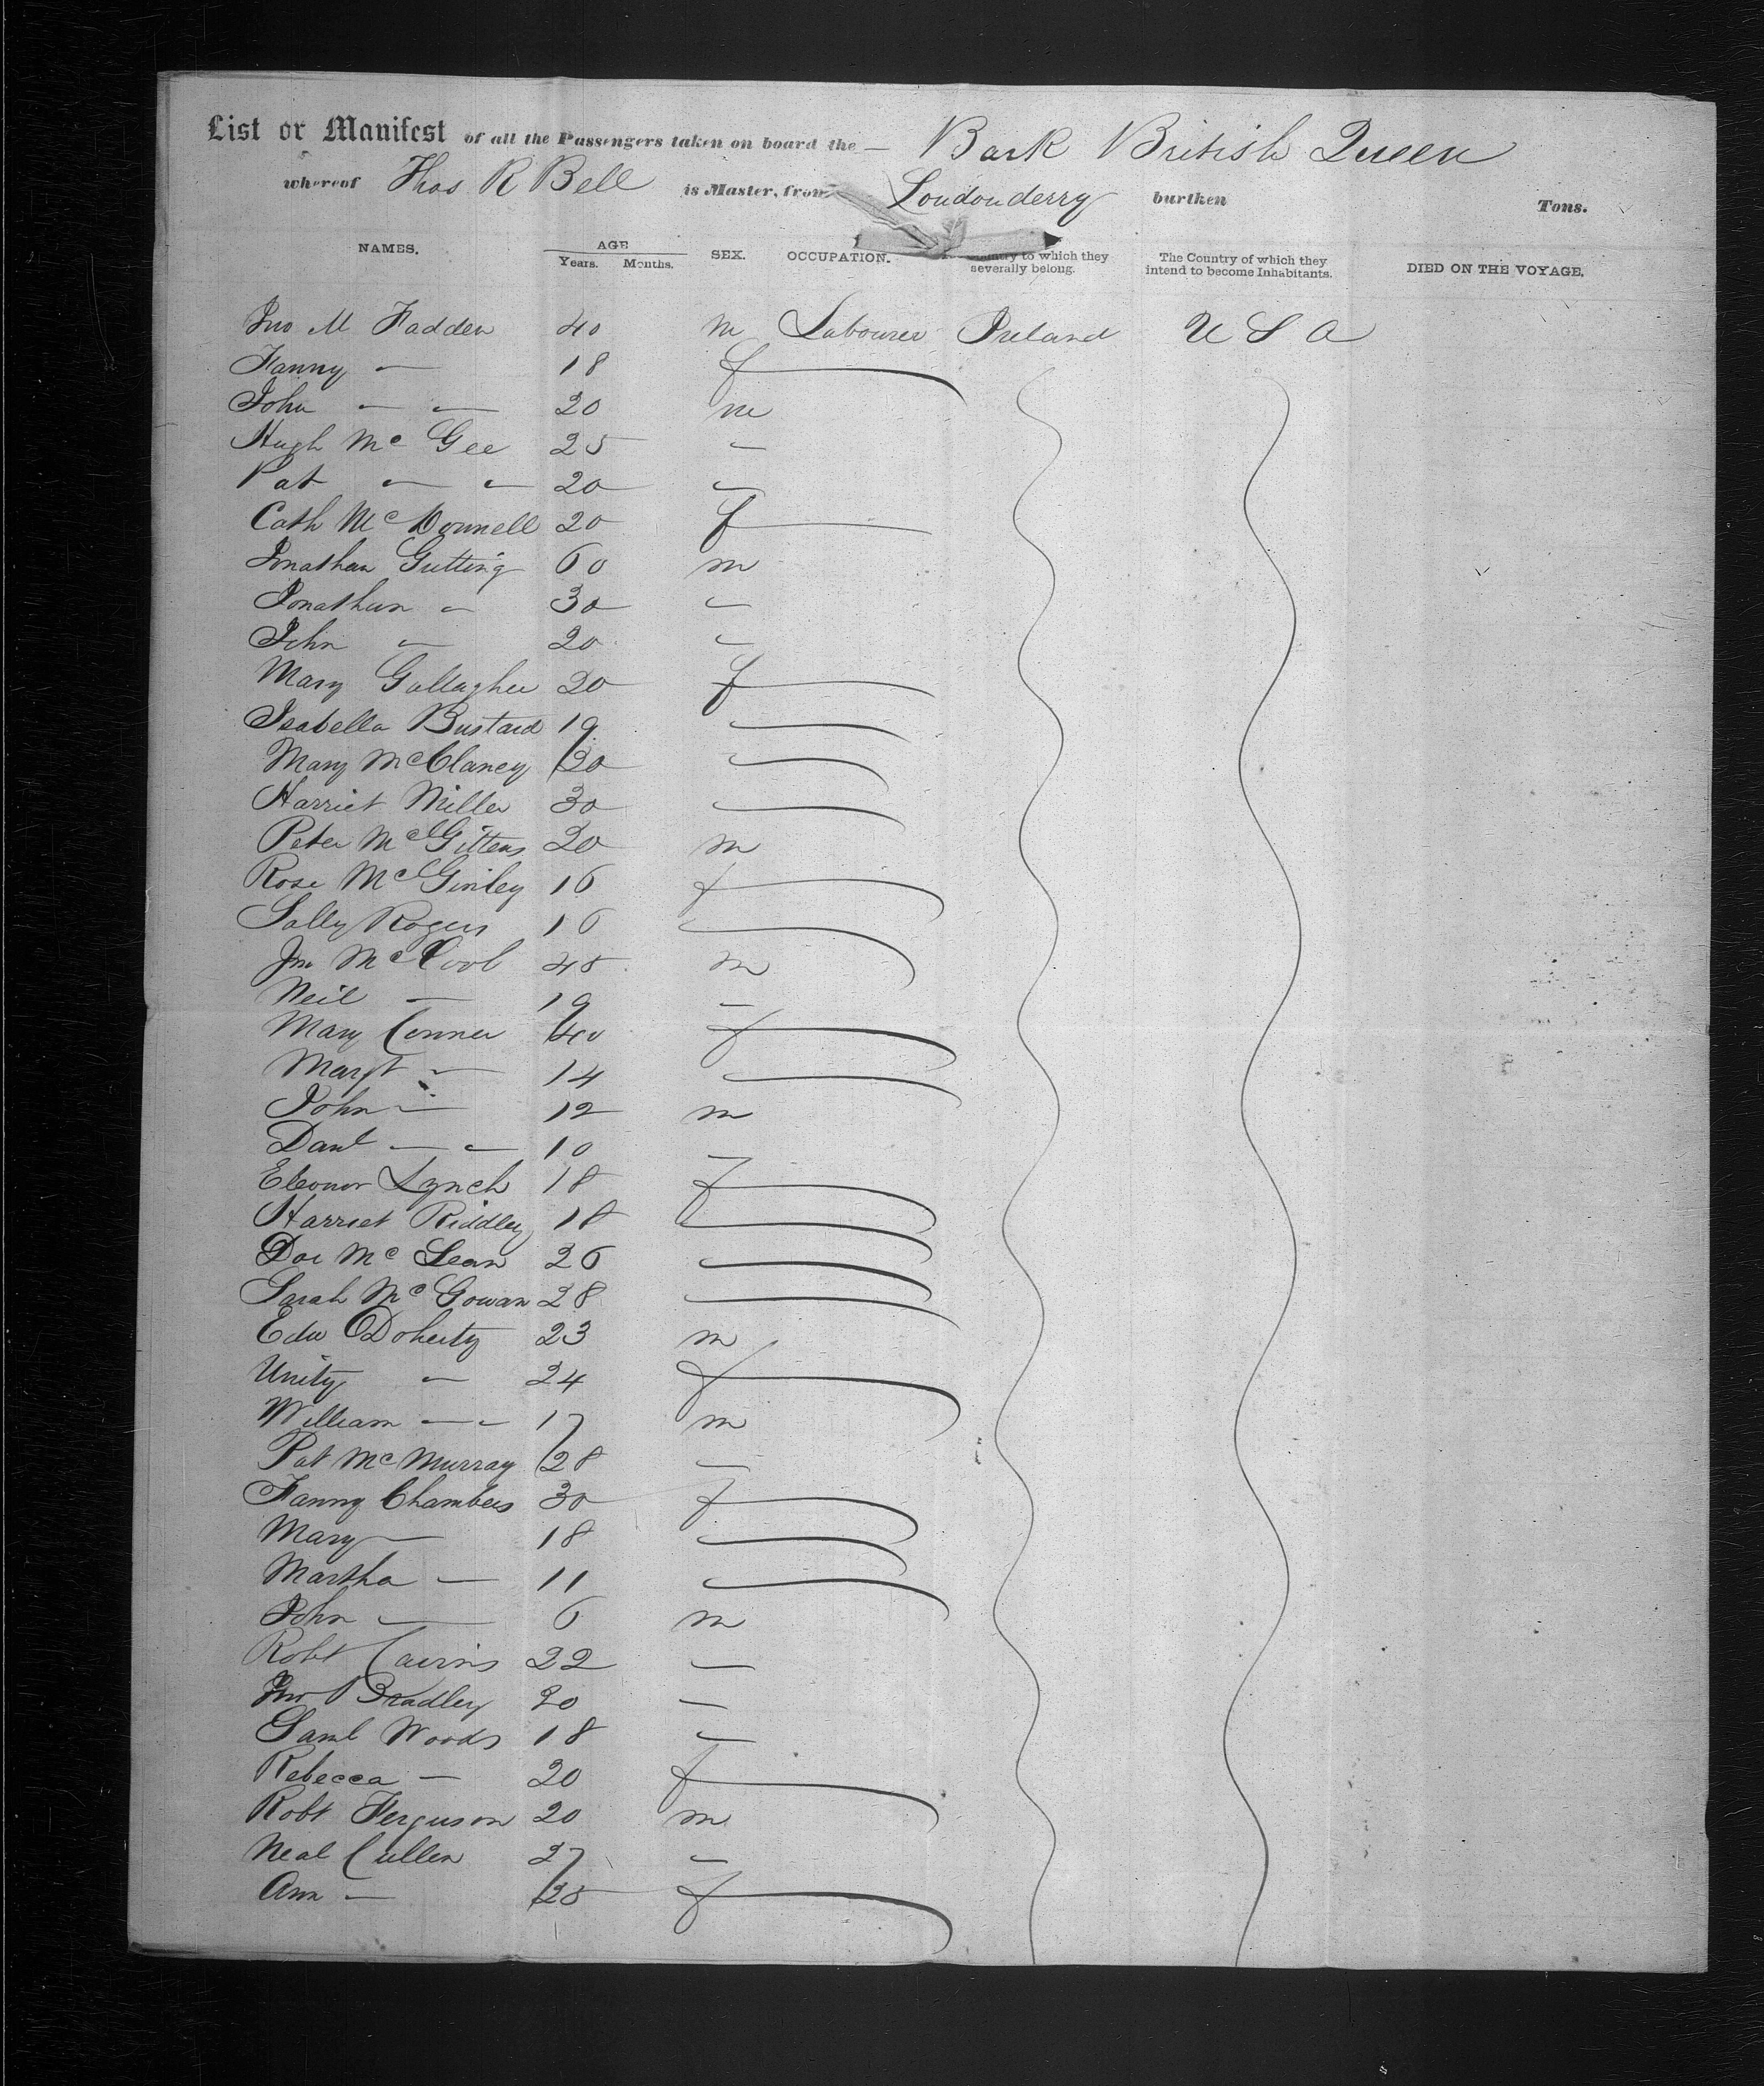 List or Manifest of all the Passengers taken on board the — Bark British Queen
whereof Thos R Bell is Master, from Londonderry burthen Tons.
NAMES. AGE Years. Months. SEX. OCCUPATION. to which they severally belong. The Country of which they intend to become Inhabitants. DIED ON THE VOYAGE.
Jno M Fadden 40 m Labourer Ireland U S A
Fanny — 18 f
John — — 20 m
Hugh Mc Gee 25 —
Pat — — 20 —
Cath Mc Donnell 20 f
Jonathan Gutting 60 m
Jonathan — 30 —
John — 20 —
Mary Gallagher 20 f
Isabella Bustard 19 —
Mary McClaney 20 —
Harriet Miller 30 —
Peter McGittens 20 m
Rose McGinley 16 f
Sally Rogers 16 —
Jno McCool 45 m
Neil — 19 —
Mary Conner 40 f
Margt — 14 —
John — 12 m
Danl — — 10 —
Eleonor Lynch 18 f
Harriet Riddley 18 —
Mc Lean 26 —
Sarah Mc Gowan 28 —
Edw ODoherty 23 m
Unity — 24 f
William — — 17 m
Pat McMurray 28 —
Fanny Chambers 30 f
Mary — 18 —
Martha — 11 —
John — 6 m
Robt Cairns 22 —
Jno Bradley 20 —
Saml Woods 18 —
Rebecca — 20 f
Robt Ferguson 20 m
Neal Cullen 27 —
Ann — 25 f